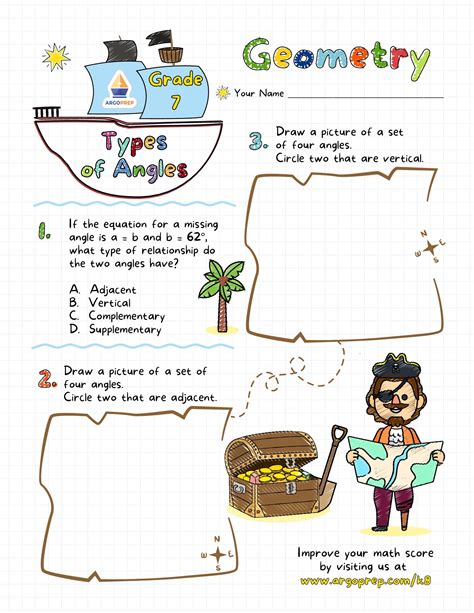 Geometry
ARGOPREP
Grade
7
Types
of Angles
Your Name
1.
If the equation for a missing
angle is a = b and b = 62°,
what type of relationship do
the two angles have?
A. Adjacent
B. Vertical
C. Complementary
D. Supplementary
2.
Draw a picture of a set of
four angles.
Circle two that are adjacent.
N
W E
S
3.
Draw a picture of a set
of four angles.
Circle two that are vertical.
N
W E
S
Improve your math score
by visiting us at
www.argoprep.com/k8